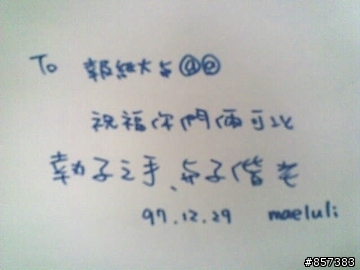 To 報紙大与@@
祝福你們倆可以
執子之手、与子偕老
97.12.29 maeluli
#857383